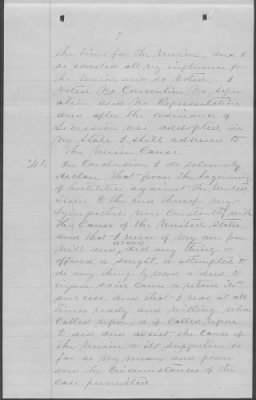 7
the time for the Union, and I
so exerted all my influence for
the Union and so voted. I
voted No Convention No Seper
ation and No Representation
and after the ordinance of
Secession was addopted in
my State I still adhered to
the Union Cause.
In Conclusion I do solemnly
declare that from the beginning
of hostilities against the United
States to the end thereof, my
Sympathies were Constantly with
the Cause of the United States,
and that I never of my own free
will and accord did any thing, or
offered or sought or attempted to
do any thing by word or deed, to
injure said Cause or retard its
success and that I was at all
times ready and willing when
Called upon, or if Called upon
to aid and assist the Cause of
the Union or its supporters so
far as my means and power
and the Circumstances of the
case permitted